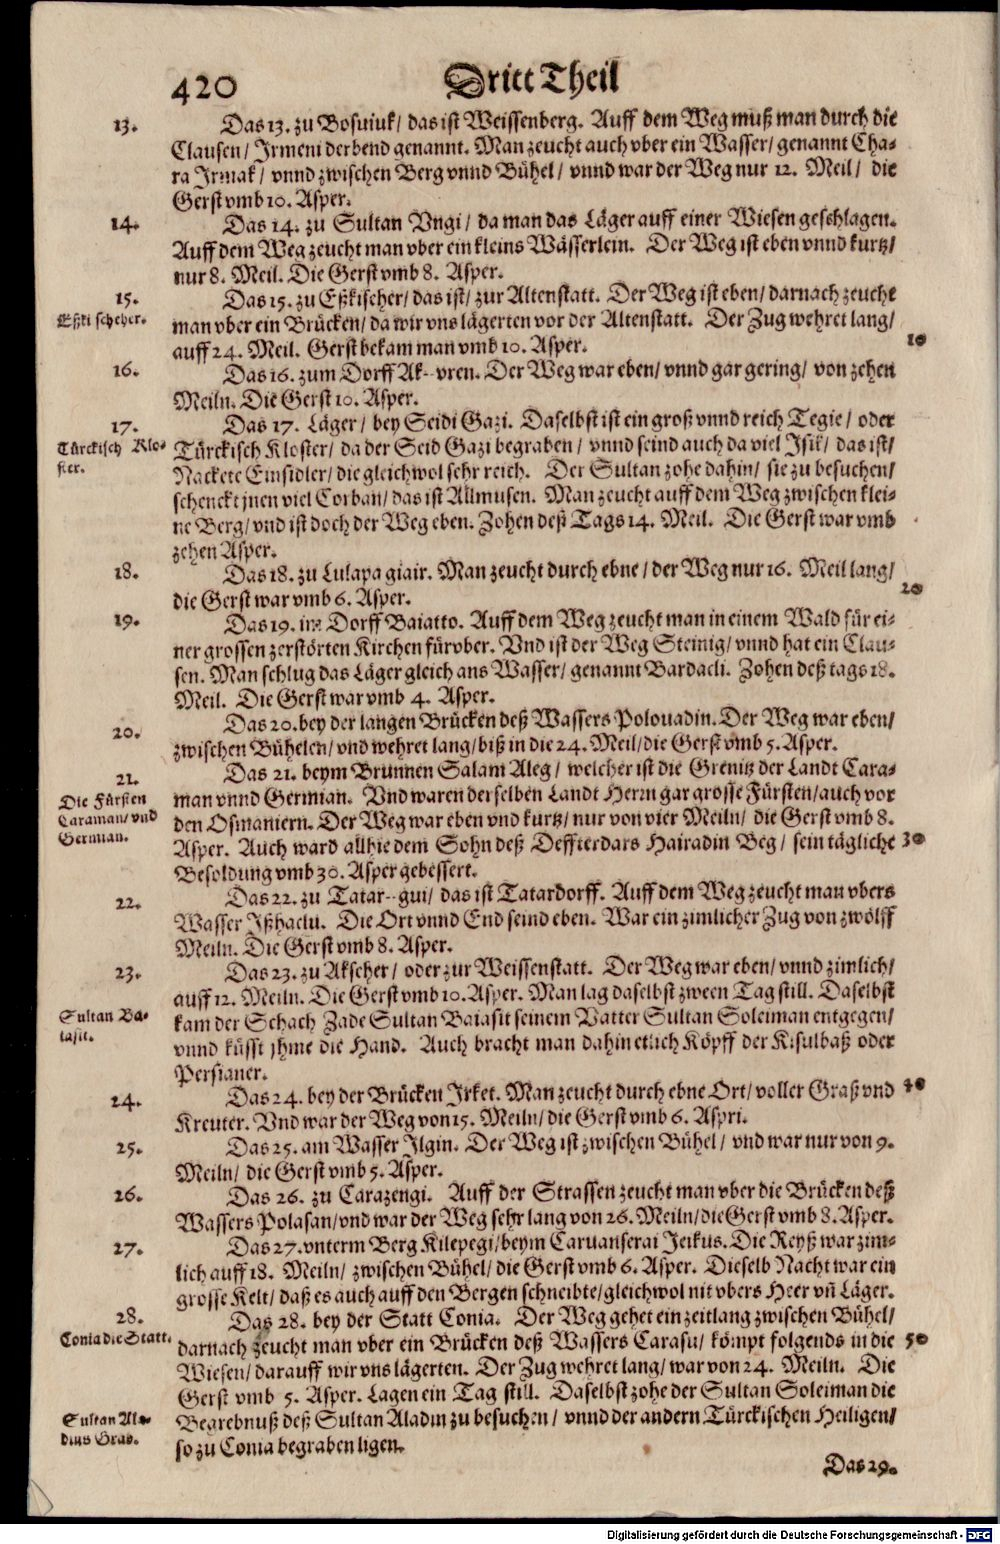 420 Dritt Theil
13. Das 13. zu Bosuiuk/ das ist Weissenberg. Auff dem Weg muß man durch die
Clausen/ Irmeni derbend genannt. Man zeucht auch vber ein Wasser/ genannt Cha-
ra Irmak/ vnnd zwischen Berg vnnd Bühel/ vnnd war der Weg nur 12. Meil/ die
Gerst vmb 10. Asper.
14. Das 14. zu Sultan Vngi/ da man das Läger auff einer Wiesen geschlagen.
Auff dem Weg zeucht man vber ein kleins Wässerlein. Der Weg ist eben vnnd kurtz/
nur 8. Meil. Die Gerst vmb 8. Asper.
15. Das 15. zu Eßkischer/ das ist/ zur Altenstatt. Der Weg ist eben/ darnach zeucht
Eßki scheher. man vber ein Brücken/ da wir vns lägerten vor der Altenstatt. Der Zug wehret lang/
auff 24. Meil. Gerst bekam man vmb 10. Asper. 10
16. Das 16. zum Dorff Ak--vren. Der Weg war eben/ vnnd gar gering/ von zehen
Meiln. Die Gerst 10. Asper.
17. Das 17. Läger/ bey Seidi Gazi. Daselbst ist ein groß vnnd reich Tegie/ oder
Türckisch Klo- Türckisch Kloster/ da der Seid Gazi begraben/ vnnd seind auch da viel Isik/ das ist/
ster. Nackete Einsidler/ die gleichwol sehr reich. Der Sultan zohe dahin/ sie zu besuchen/
schenckt jnen viel Corban/ das ist Allmusen. Man zeucht auff dem Weg zwischen klei-
ne Berg/ vnd ist doch der Weg eben. Zohen deß Tags 14. Meil. Die Gerst war vmb
zehen Asper.
18. Das 18. zu Lulapa giair. Man zeucht durch ebne/ der Weg nur 16. Meil lang/
die Gerst war vmb 6. Asper. 20
19. Das 19. im Dorff Baiatto. Auff dem Weg zeucht man in einem Wald für ei-
ner grossen zerstörten Kirchen fürvber. Vnd ist der Weg Steinig/ vnnd hat ein Clau-
sen. Man schlug das Läger gleich ans Wasser/ genannt Bardacli. Zohen deß tags 18.
Meil. Die Gerst war vmb 4. Asper.
20. Das 20. bey der langen Brücken deß Wassers Polouadin. Der Weg war eben/
zwischen Bühelen/ vnd wehret lang/ biß in die 24. Meil/ die Gerst vmb 5. Asper.
21. Das 21. beym Brunnen Salam Aleg/ welcher ist die Grenitz der Landt Cara-
Die Fürsten man vnnd Germian. Vnd waren derselben Landt Herrn gar grosse Fürsten/ auch vor
Caraman/ vnd den Osmaniern. Der Weg war eben vnd kurtz/ nur von vier Meiln/ die Gerst vmb 8.
Germian. Asper. Auch ward allhie dem Sohn deß Deffterdars Hairadin Beg/ sein tägliche 30
Besoldung vmb 30. Asper gebessert.
22. Das 22. zu Tatar--gui/ das ist Tatardorff. Auff dem Weg zeucht man vbers
Wasser Ißhaclu. Die Ort vnnd End seind eben. War ein zimlicher Zug von zwölff
Meiln. Die Gerst vmb 8. Asper.
23. Das 23. zu Akscher/ oder zur Weissenstatt. Der Weg war eben/ vnnd zimlich/
auff 12. Meiln. Die Gerst vmb 10. Asper. Man lag daselbst zween Tag still. Daselbst
Sultan Ba- kam der Schach Zade Sultan Baiasit seinem Vatter Sultan Soleiman entgegen/
iasit. vnnd küsst jhme die Hand. Auch bracht man dahin etlich Köpff der Kisulbaß oder
Persianer.
24. Das 24. bey der Brücken Irket. Man zeucht durch ebne Ort/ voller Graß vnd 40
Kreuter. Vnd war der Weg von 15. Meiln/ die Gerst vmb 6. Aspri.
25. Das 25. am Wasser Ilgin. Der Weg ist zwischen Bühel/ vnd war nur von 9.
Meiln/ die Gerst vmb 5. Asper.
26. Das 26. zu Carazengi. Auff der Strassen zeucht man vber die Brücken deß
Wassers Polasan/ vnd war der Weg sehr lang von 26. Meiln/ die Gerst vmb 8. Asper.
27. Das 27. vnterm Berg Kilepegi/ beym Caruanserai Jeikus. Die Reyß war zim-
lich auff 18. Meiln/ zwischen Bühel/ die Gerst vmb 6. Asper. Dieselb Nacht war ein
grosse Kelt/ daß es auch auff den Bergen schneibte/ gleichwol nit vbers Heer vn̄ Läger.
28. Das 28. bey der Statt Conia. Der Weg gehet ein zeitlang zwischen Bühel/
Conia die Statt. darnach zeucht man vber ein Brücken deß Wassers Carasu/ kömpt folgends in die 50
Wiesen/ darauff wir vns lägerten. Der Zug wehret lang/ war von 24. Meiln. Die
Gerst vmb 5. Asper. Lagen ein Tag still. Daselbst zohe der Sultan Soleiman die
Sultan Ala- Begrebnuß deß Sultan Aladin zu besuchen/ vnnd der andern Türckischen Heiligen/
dins Grab. so zu Conia begraben ligen.
Das 29.
Digitalisierung gefördert durch die Deutsche Forschungsgemeinschaft - DFG